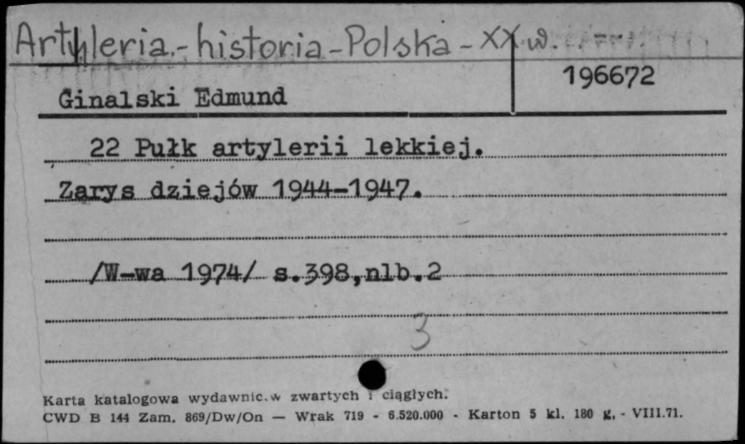 Artyleria.-historia-Polska-XX w.
196672
Ginalski Edmund
22 Pułk artylerii lekkiej.
Zarys dziejów 1944-1947.
/W-wa 1974/ s.398,nlb.2
3
Karta katalogowa wydawnic.w zwartych i ciągłych.
CWD B 144 Zam. 869/Dw/On — Wrak 719 - 6.520.000 - Karton 5 kl. 180 g. - VIII.71.